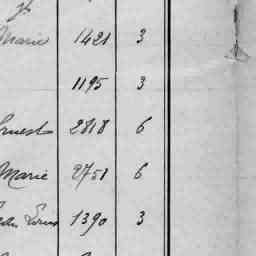 Marie 1421 3
1195 3
Ernest 2818 6
Marie 2751 6
1390 3